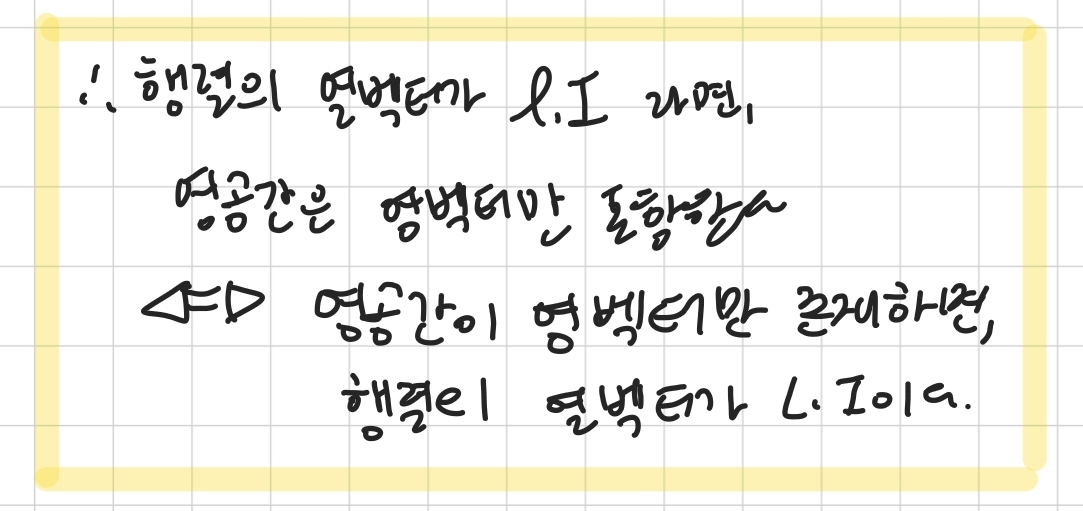 ∴ 행렬의 열벡터가 l.I 라면,
영공간은 영벡터만 포함한다
⇔ 영공간이 영벡터만 존재하면,
행렬의 열벡터가 L.I이다.